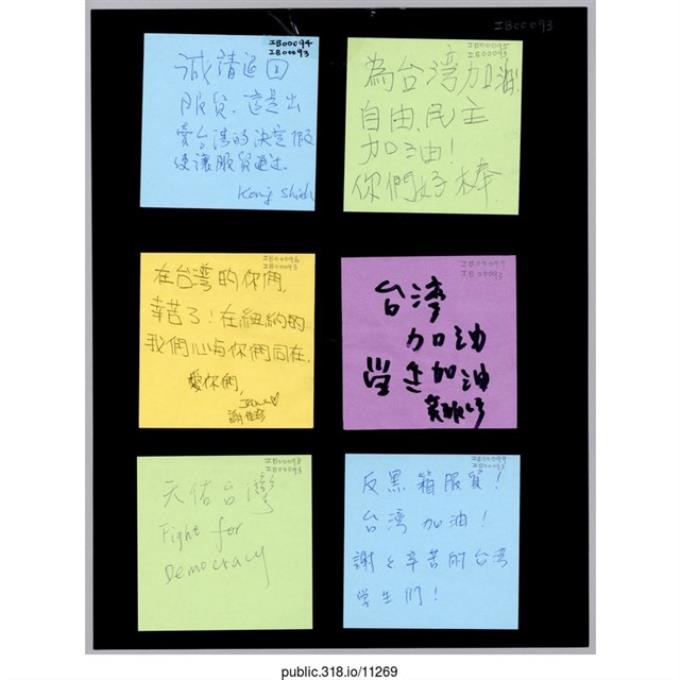 IB00093
IB00094
IB00093
誠請退回
服貿，這是出
賣台灣的決定
使讓服貿通过.
Kenj Shieh
IB00095
IB00093
為台湾加油.
自由、民主
加油!
你們好棒.
IB00096
IB00093
在台湾的你們,
辛苦了!在紐約的
我們心与你們同在.
愛你們,
IB00097
IB00093
台湾
加油
学生加油
IB00098
IB00093
天佑台灣
Fight for
Democracy
IB00099
IB00093
反黑箱服貿!
台湾加油!
謝々辛苦的台湾
学生们!
public.318.io/11269